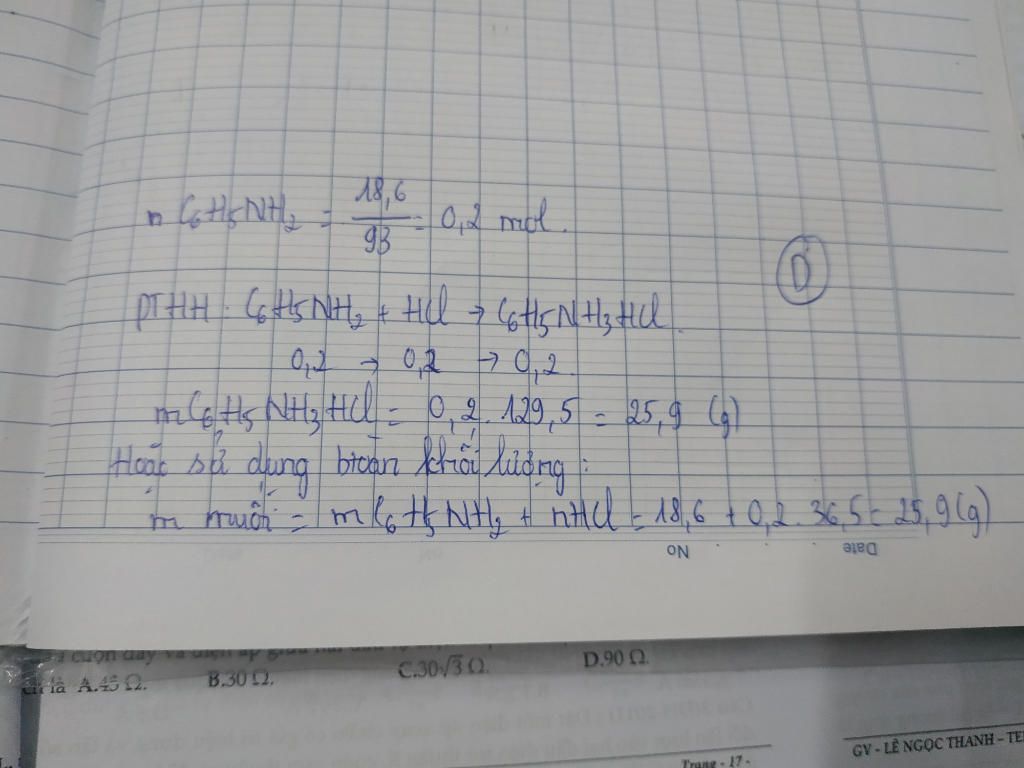 n C6H5NH2 = 18,6 / 93 = 0,2 mol.
D
PTHH: C6H5NH2 + HCl → C6H5NH3HCl.
0,2 → 0,2 → 0,2.
m C6H5NH3HCl = 0,2. 129,5 = 25,9 (g)
Hoặc sử dụng btoàn khối lượng:
m muối = m C6H5NH2 + nHCl = 18,6 + 0,2. 36,5 = 25,9(g)
No Date
cuộn dây và điện áp giữa hai đầu
là A.45 Ω. B.30 Ω. C.30√3 Ω. D.90 Ω.
Trang - 17 -
GV - LÊ NGỌC THANH - TE